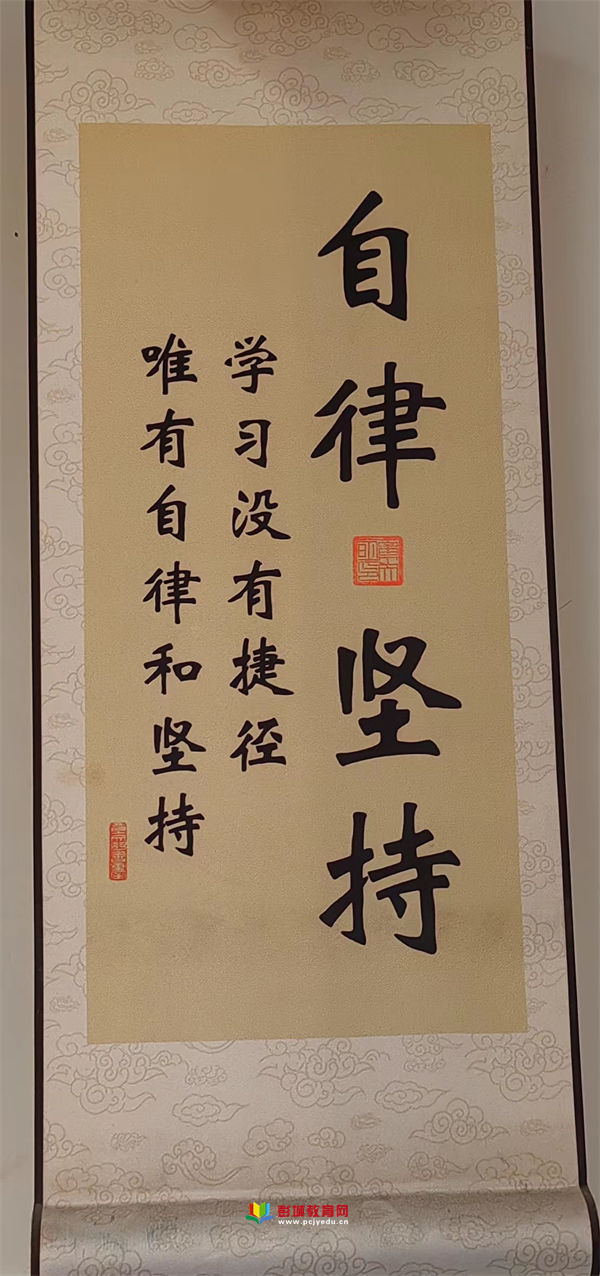 自律坚持
学习没有捷径
唯有自律和坚持
彭城教育网
www.pcjyedu.cn